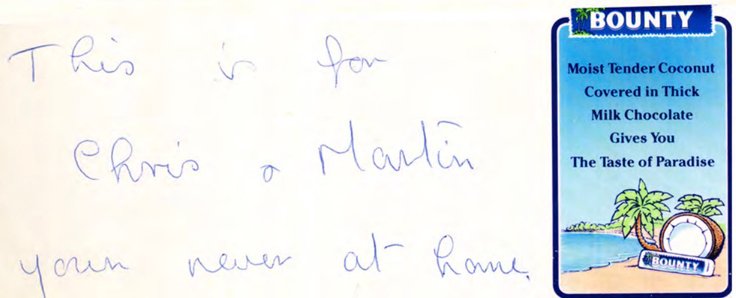 This is for
Chris & Martin
your never at home.
BOUNTY
Moist Tender Coconut
Covered in Thick
Milk Chocolate
Gives You
The Taste of Paradise
BOUNTY